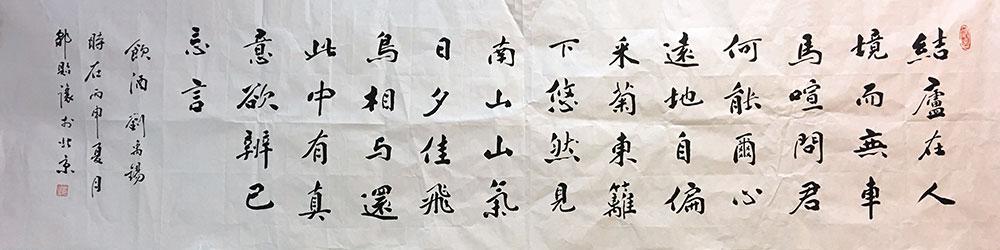 結廬在人
境而無車
馬喧問君
何能爾心
遠地自偏
采菊東籬
下悠然見
南山山氣
日夕佳飛
鳥相与還
此中有真
意欲辨已
忘言
飲酒 劉禹錫
時在丙申夏月
於北京